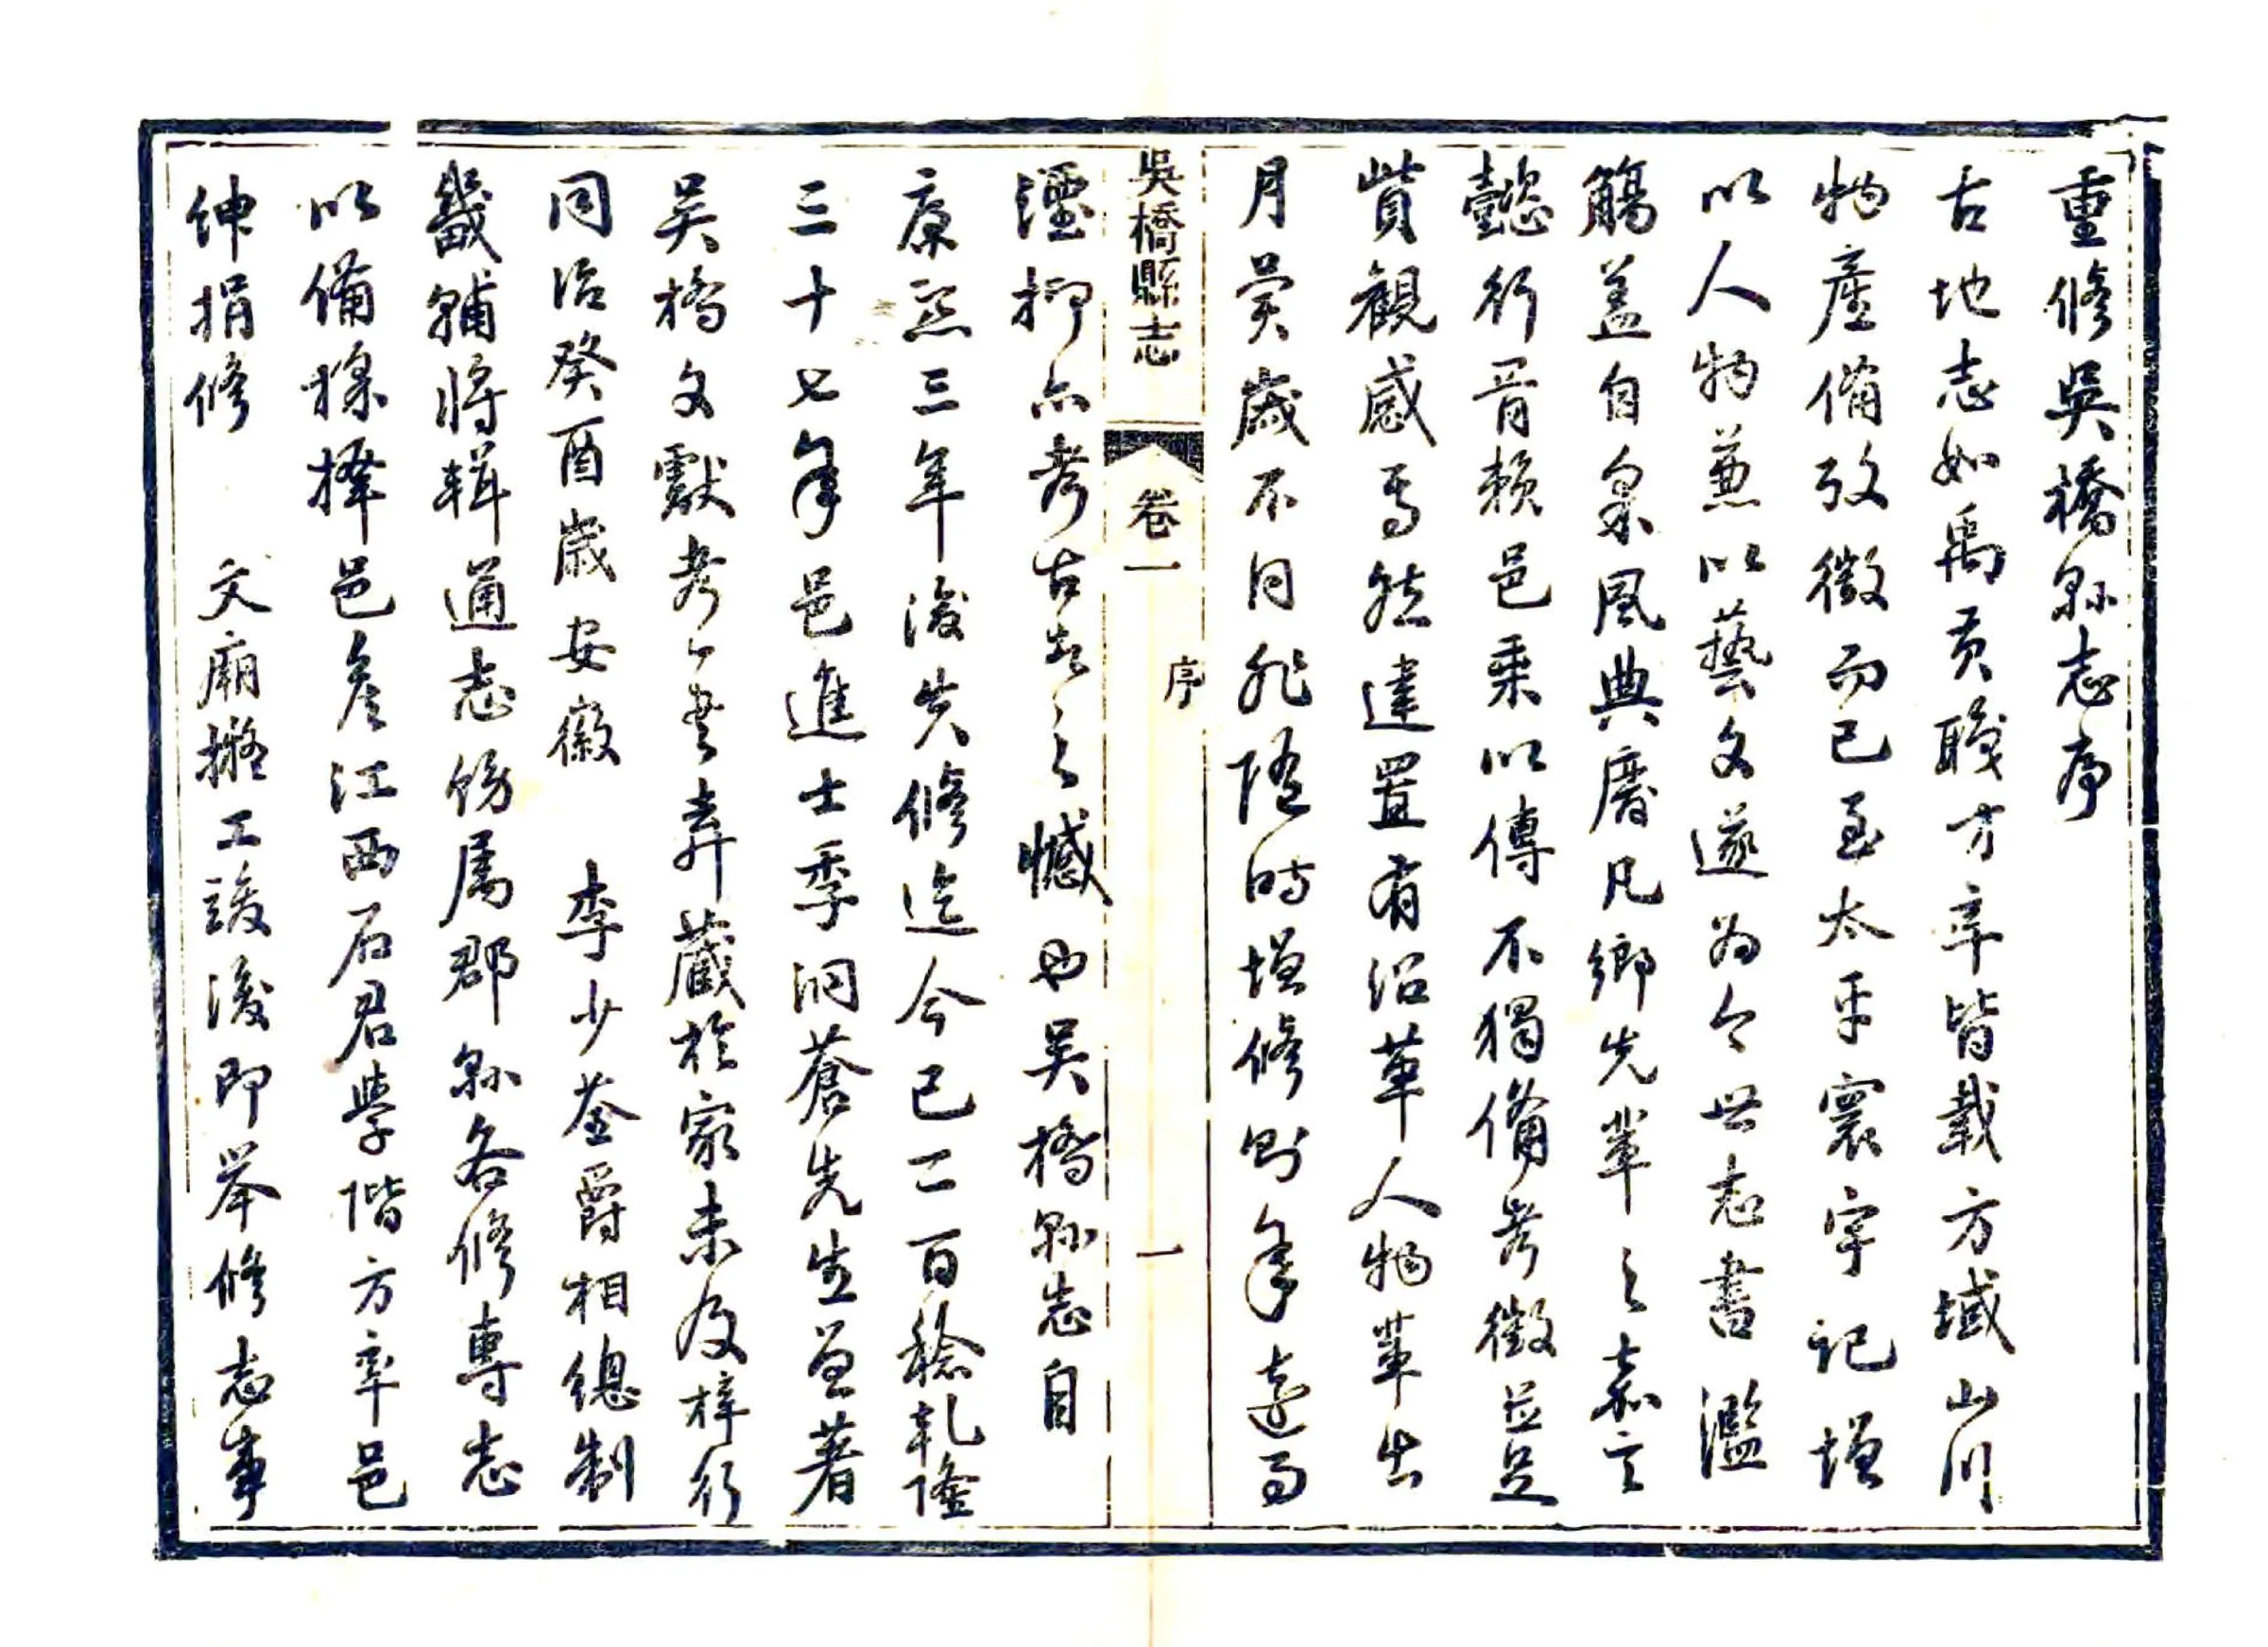 重修吳橋縣志序
古地志如禹貢職方率皆載方域山川
物產備攷徵而已至太平寰宇記增
以人物兼以藝文遂為今世志書濫
觴蓋自采風典廢凡鄉先輩之嘉言
懿行胥賴邑乘以傳不獨備考徵並足
資觀感焉然建置有沿革人物輩出
月異歲不同非隨時增修則年遠而
吳橋縣志
卷一
序
一
湮抑亦考古者之憾也吳橋縣志自
康熙三年後失修迄今已二百稔乾隆
三十七年邑進士季洞蒼先生曾著
吳橋文獻考一書弆藏於家未及梓行
同治癸酉歲安徽 李少荃爵相總制
畿輔將輯通志飭屬郡縣各修專志
以備採擇邑彥江西石君學階方率邑
紳捐修 文廟擬工竣後即舉修志事